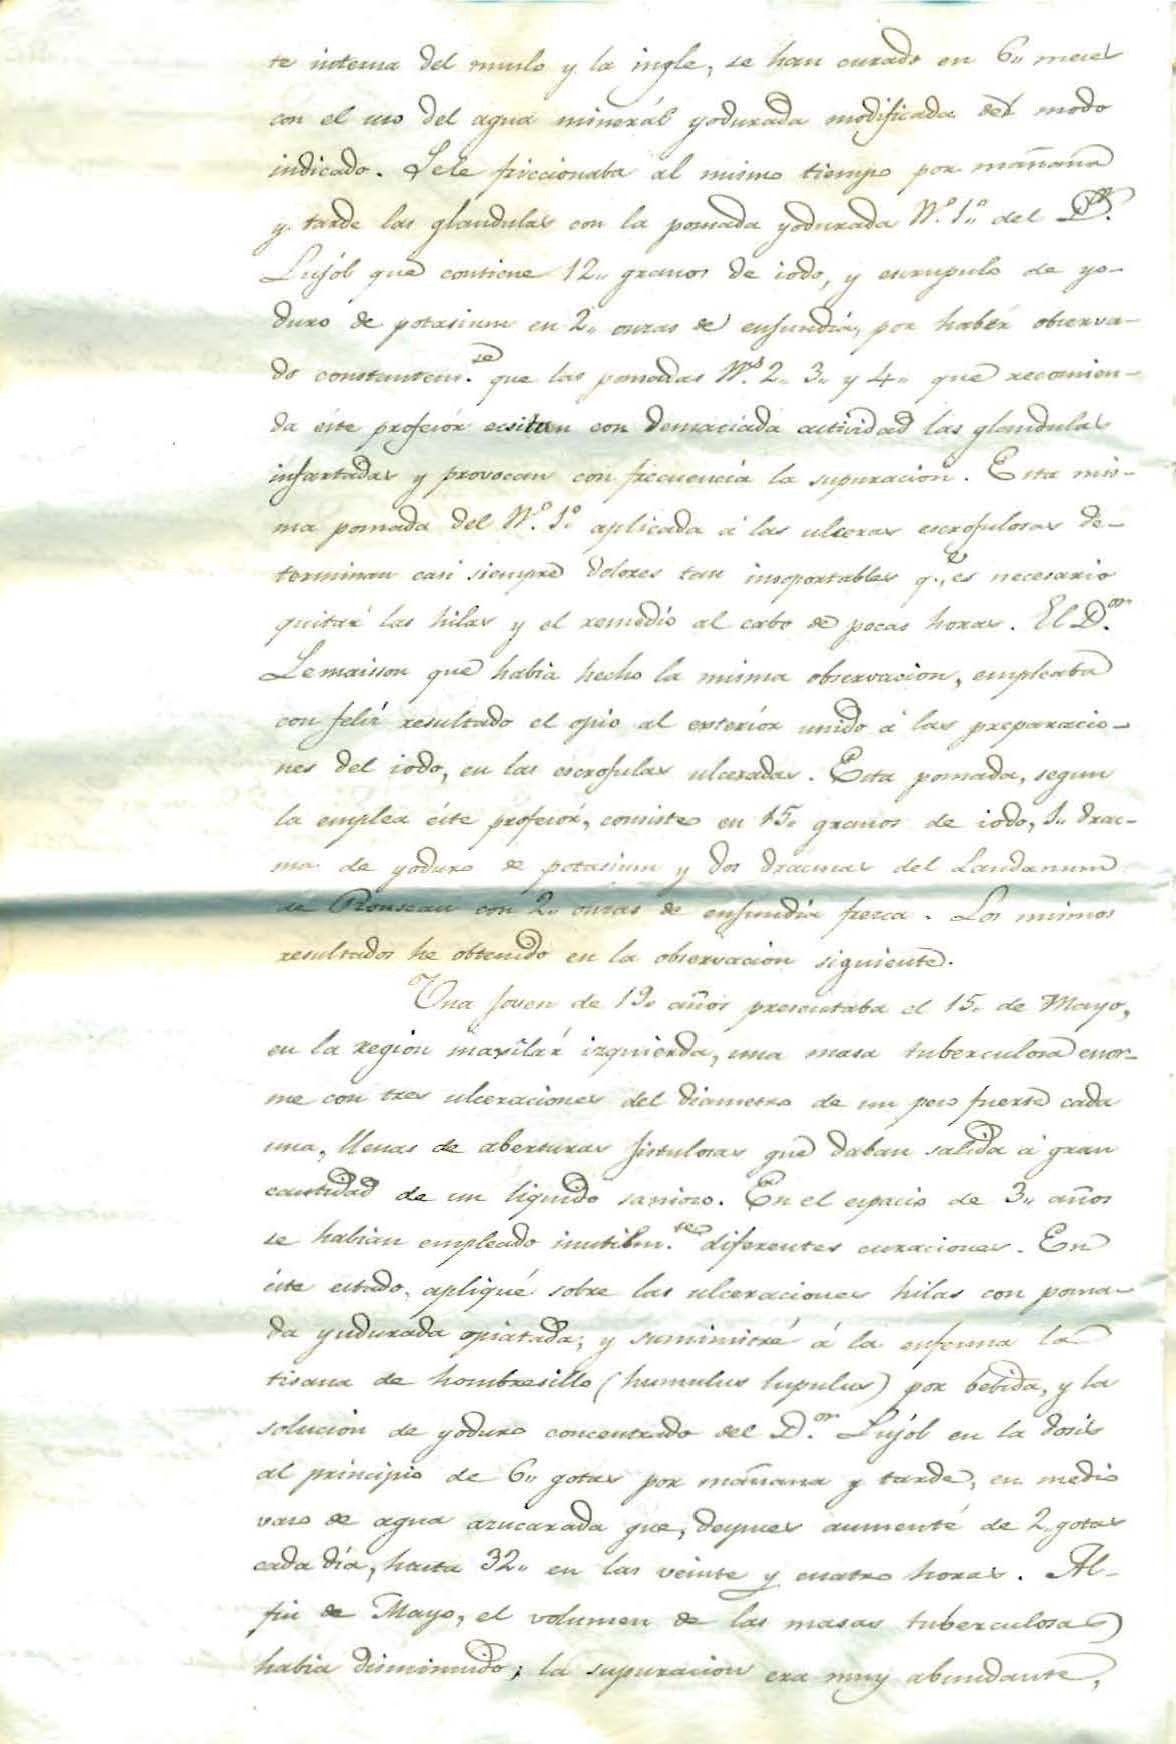 te interna del muslo y la ingle, se han curado en 6,, meses
con el uso del agua minerál yodurada modificada del modo
indicado. Sele friccionaba al mismo tiempo por mañana
y tarde las glandulas con la pomada yodurada N.º 1.º del D.ºr
Lujól que contiene 12,, granos de iodo, y escrupulo de yo-
duro de potasium en 2,, onzas de enfundia, por habér observa-
do constantem.te que las pomadas N.os 2,, 3,, y 4,, que recomien-
da éste profesór ecsitan con demaciada actividad las glandulas
infartadas y provocan con frecuencia la supuracion. Esta mis-
ma pomada del N.º 1.º aplicada á las ulceras escrofulosas de-
terminan casi siempre dolores tan insoportables q.e es necesario
quitár las hilas y el remedio al cabo de pocas horas. El D.or
Lemaisson que habia hecho la misma observacion, empleaba
con felíz resultado el opio al exteriór unido á las preparacio-
nes del iodo, en las escrofulas ulceradas. Esta pomada, segun
la emplea éste profesór, consiste en 15,, granos de iodo, 1,, drac-
ma de yoduro de potasium y dos dracmas del Laudanum
de Rouseau con 2,, onzas de enfundia fresca. Los mismos
resultados he obtenido en la observacion siguiente.
Una joven de 19,, años presentaba el 15,, de Mayo,
en la region maxilár izquierda, una masa tuberculosa enor-
me con tres ulceraciones del diametro de un peso fuerte cada
una, llenas de aberturas fistulosas que daban salida á gran
cantidad de un liquido sanioso. En el espacio de 3,, años
se habian empleado inutilm.te diferentes curaciones. En
éste estado, apliqué sobre las ulceraciones hilas con poma-
da yudurada opiatada; y suministré á la enferma la
tisana de hombresillo (humulus lupulus) por bebida, y la
solucion de yoduro concentrado del D.or Lujól en la dosis
al principio de 6,, gotas por mañana y tarde, en medio
vaso de agua azucarada que, despues aumenté de 2,, gotas
cada dia, hasta 32,, en las veinte y cuatro horas. Al-
fin de Mayo, el volumen de las masas tuberculosas
habia disminuido; la supuracion era muy abundante,